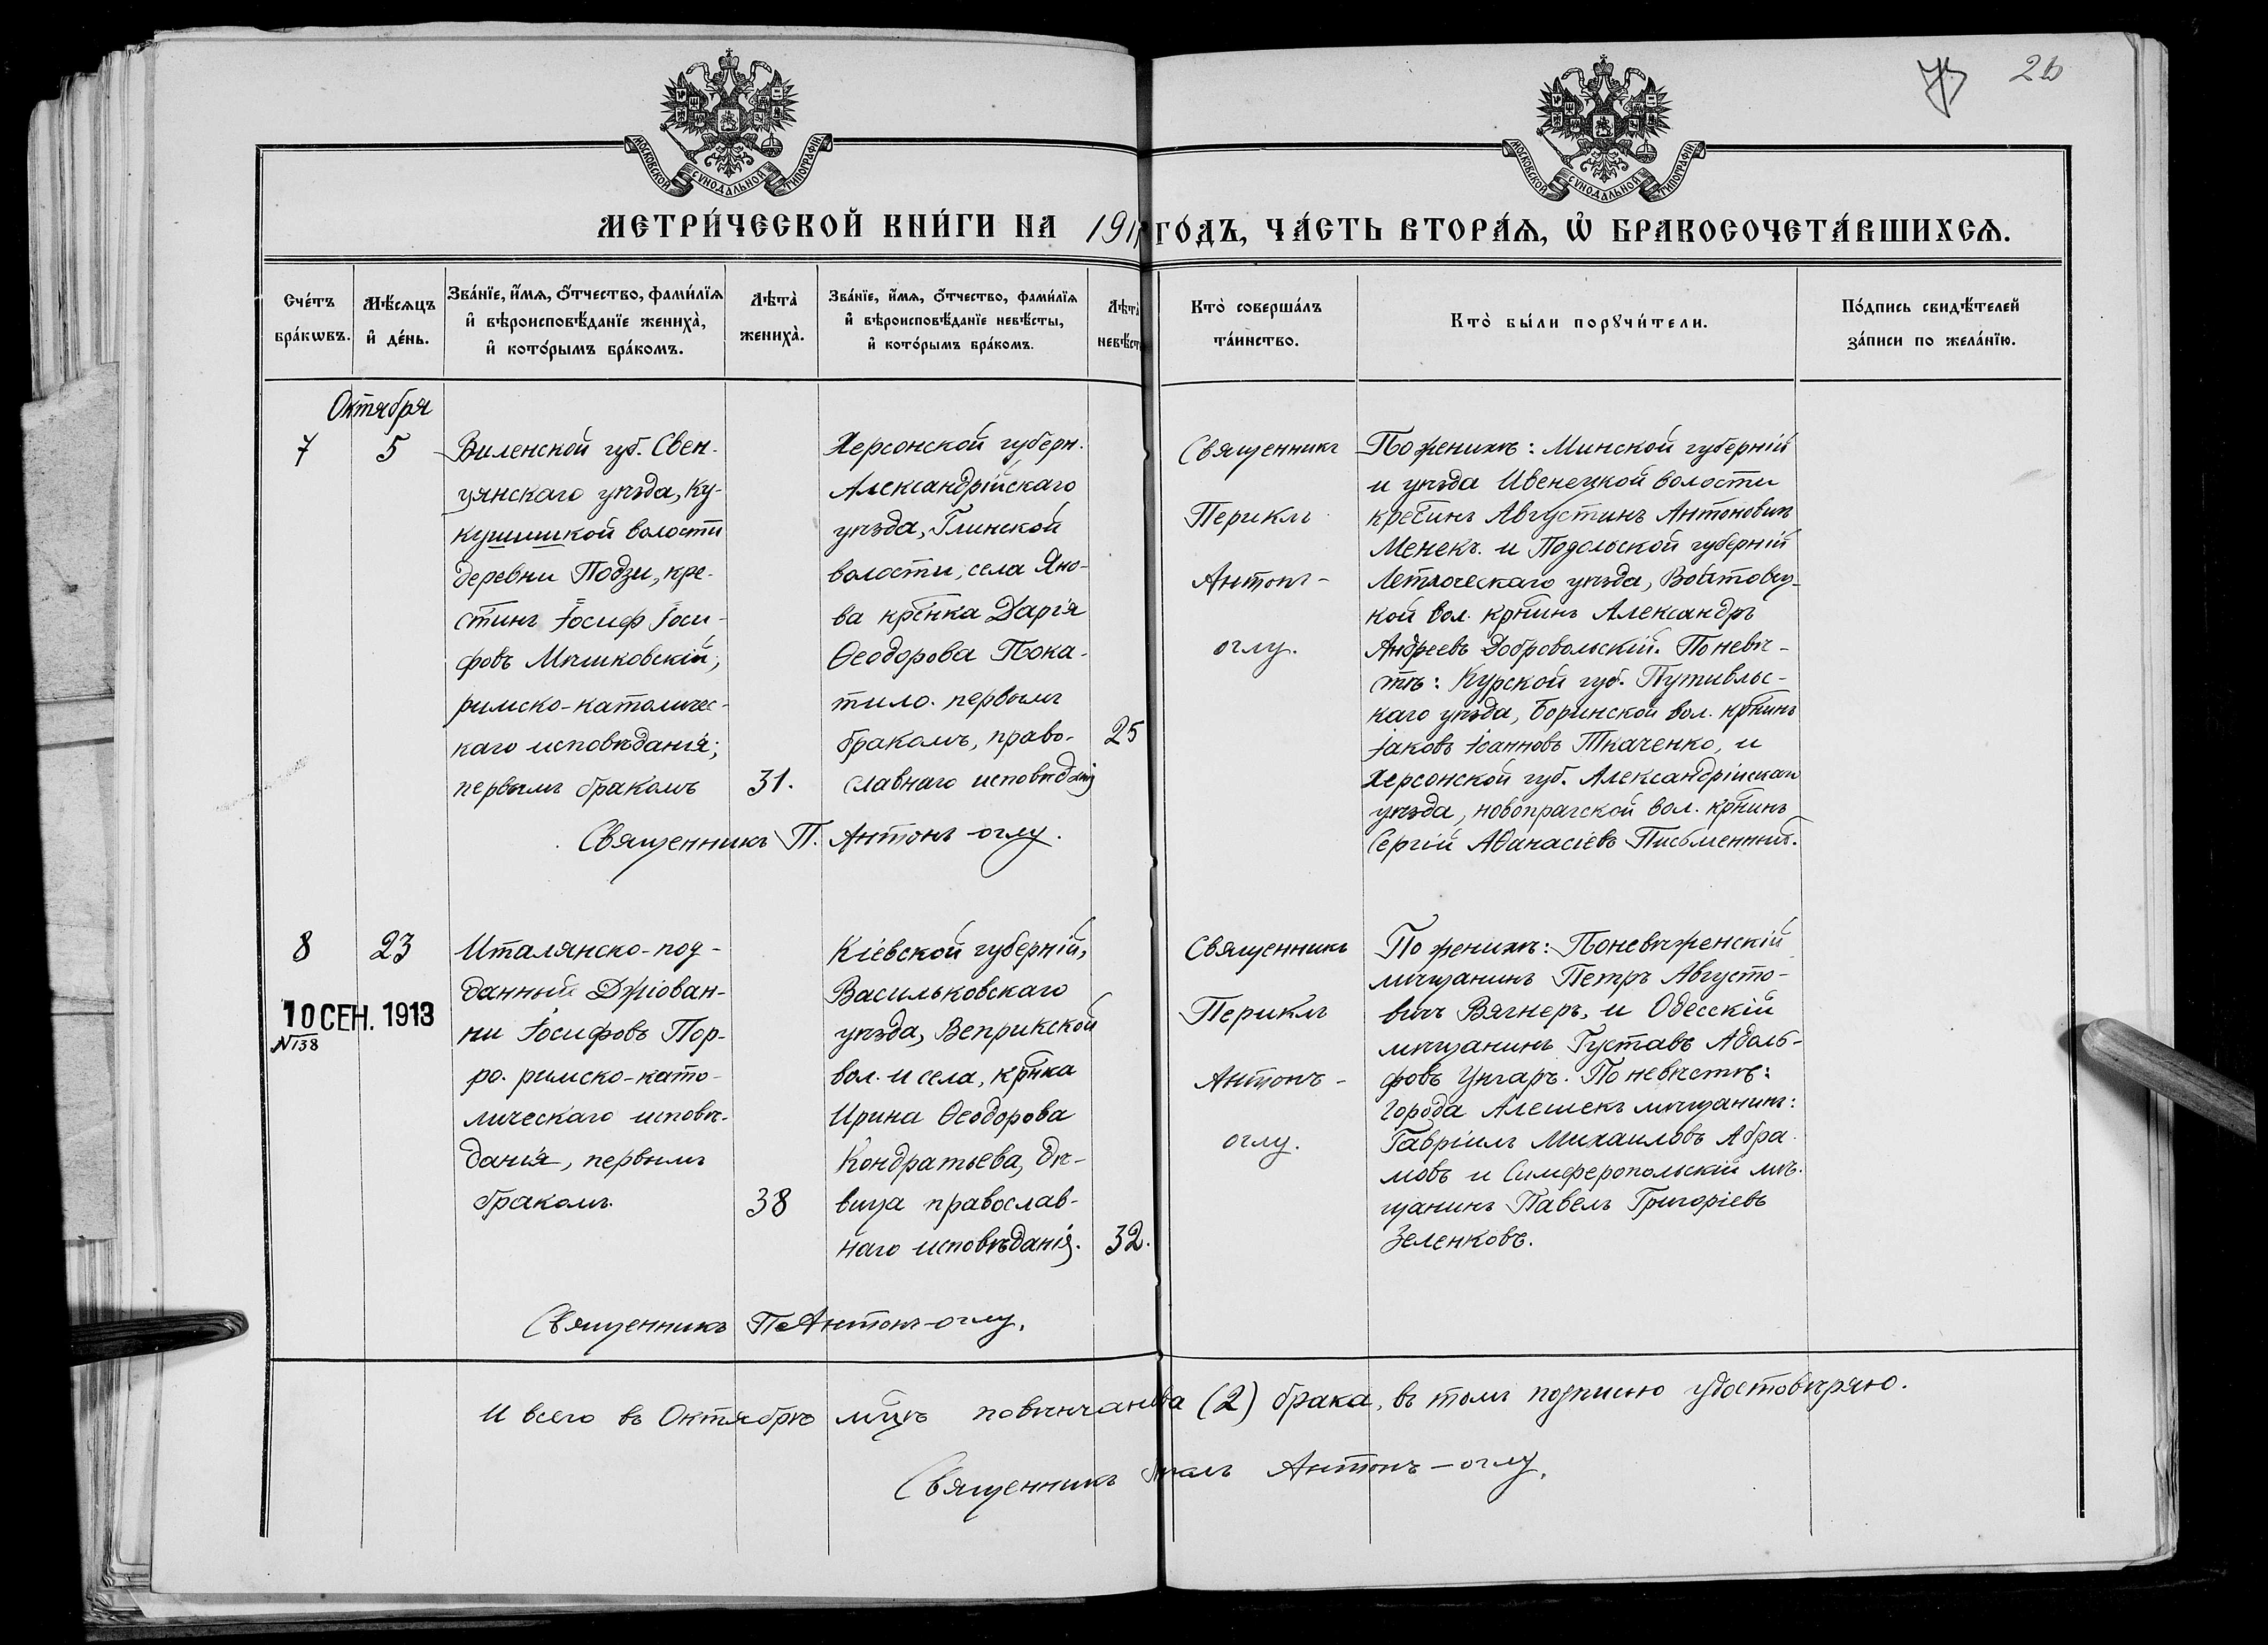 26
МОСКОВСКОЙ СѴНОДАЛЬНОЙ ТИПОГРАФІИ
МОСКОВСКОЙ СѴНОДАЛЬНОЙ ТИПОГРАФІИ
МЕТРИ́ЧЕСКОЙ КНИ́ГИ НА 191 ГО́ДЪ, ЧА́СТЬ ВТОРА́Ѧ, Ѽ БРАКОСОЧЕТА́ВШИХСѦ.
Сче́тъ бра́кωвъ.
Мѣ́сѧцъ и҆ де́нь.
Зва́нїе, и҆́мѧ, ѻ҆́тчество, фами́лїѧ
и҆ вѣроисповѣ́данїе жениха̀,
и҆ кото́рымъ бра́комъ.
Лѣта̀ жениха̀.
Зва́нїе, и҆́мѧ, ѻ҆́тчество, фами́лїѧ
и҆ вѣроисповѣ́данїе невѣ́сты,
и҆ кото́рымъ бра́комъ.
Лѣта̀ невѣ́ст
Кто̀ соверша́лъ
та́инство.
Кто̀ бы́ли порꙋчи́тели.
По́дпись свидѣ́телей
за́писи по жела́нїю.
Октября
7
5
Виленской губ. Свен-
цянскаго уѣзда, Ку-
кушишкой волости
деревни Подзи, кре-
стинъ Іосиф Іоси-
фовъ Мышковскій,
римско-католичес-
каго исповѣданія;
первымъ бракомъ
31.
Херсонской губерн.
Александрійскаго
уѣзда, Глинской
волости, села Яно-
ва крестнка Дарія
Ѳеодорова Пока-
тило. первымъ
бракомъ, право-
славнаго исповѣданія
25
Священникъ П. Антонъ-оглу.
Священникъ
Периклъ
Антонъ-
оглу.
По женихѣ: Минской губерній
и уѣзда Ивенецкой волости
крестинъ Августинъ Антоновичъ
Менекъ. и Подольской губерній
Летическаго уѣзда, Войтовец-
кой вол. крнинъ Александръ
Андреевъ Добровольскій. По невѣ-
стѣ: Курской губ. Путивльс-
каго уѣзда, Боринской вол. крнинъ
Іаковъ Іоанновъ Ткаченко, и
Херсонской губ. Александрійскаго
уѣзда, новопрагской вол. крнинъ
Сергій Аѳанасіевъ Письменный.
8
23
10 СЕН. 1913
N 138
Италянско-под-
данный Джіован-
ни Іосифовъ Пор-
ро. римско-като-
лическаго исповѣ-
данія, первымъ
бракомъ.
38
Кіевской губерній,
Васильковскаго
уѣзда, Веприкской
вол. и села, крнка
Ирина Ѳеодорова
Кондратьева, дѣ-
вица православ-
наго исповѣданія.
32.
Священникъ
Периклъ
Антонъ-
оглу.
По женихѣ: Поневѣженскій
мѣщанинъ Петръ Августо-
вичъ Вягнеръ, и Одесскій
мѣщанинъ Густавъ Адоль-
фовъ Унгаръ. По невѣстѣ:
Города Алешекъ мѣщанинъ:
Гавріилъ Михаиловъ Абра-
мовъ и Симферопольскій мѣ-
щанинъ Павелъ Григоріевъ
Зеленковъ.
Священникъ П. Антонъ-оглу.
И всего въ Октябрѣ мцѣ повѣнчано два (2) брака, въ томъ подписью удостовѣряю.
Священникъ Антонъ-оглу.